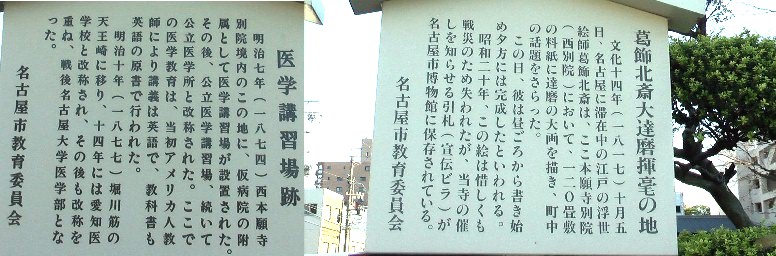 医学講習場跡
明治七年（一八七四）西本願寺
別院境内のこの地に、仮病院の附
属として医学講習場が設置された。
その後、公立医学講習場、続いて
公立医学所と改称された。ここで
の医学教育は、当初アメリカ人教
師により講義は英語で、教科書も
英語の原書で行われた。
明治十年（一八七七）堀川筋の
天王崎に移り、十四年には愛知医
学校と改称され、その後も改称を
重ね、戦後名古屋大学医学部とな
った。
名古屋市教育委員会
葛飾北斎大達磨揮毫の地
文化十四年（一八一七）十月五
日、名古屋に滞在中の江戸の浮世
絵師葛飾北斎は、ここ本願寺別院
（西別院）において、一二〇畳敷
の料紙に達磨の大画を描き、町中
の話題をさらった。
この日、彼は昼ごろから書き始
め夕方には完成したといわれる。
昭和二十年、この絵は惜しくも
戦災のため失われたが、当寺の催
しを知らせる引札（宣伝ビラ）が
名古屋市博物館に保存されている。
名古屋市教育委員会